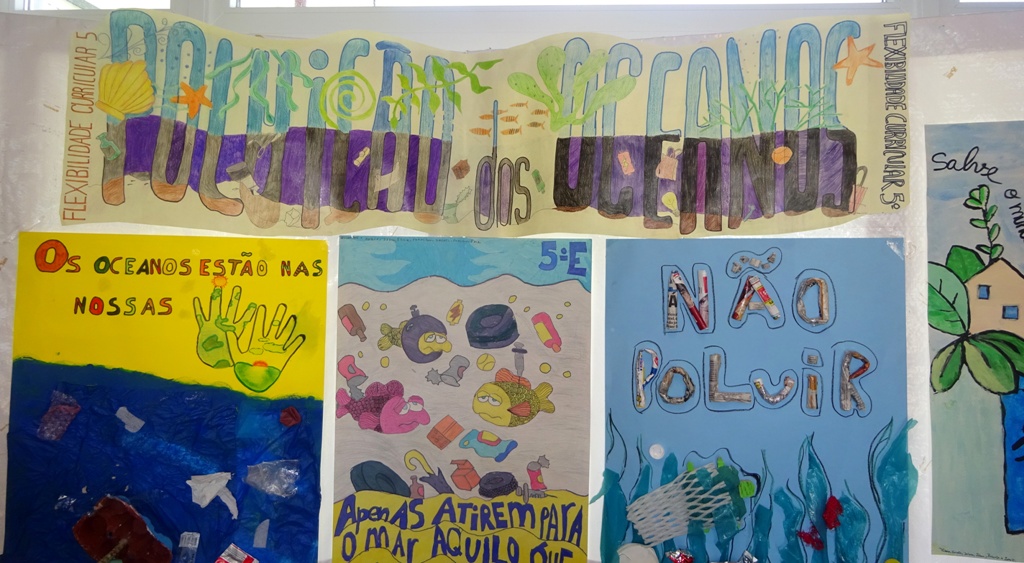 FLEXIBILIDADE CURRICULAR 5º
POLUIÇÃO dos OCEANOS
FLEXIBILIDADE CURRICULAR 5º
OS OCEANOS ESTÃO NAS
NOSSAS
5ºE
APENAS ATIREM PARA
O MAR AQUILO QUE
NÃO
POLUIR
Salve
o